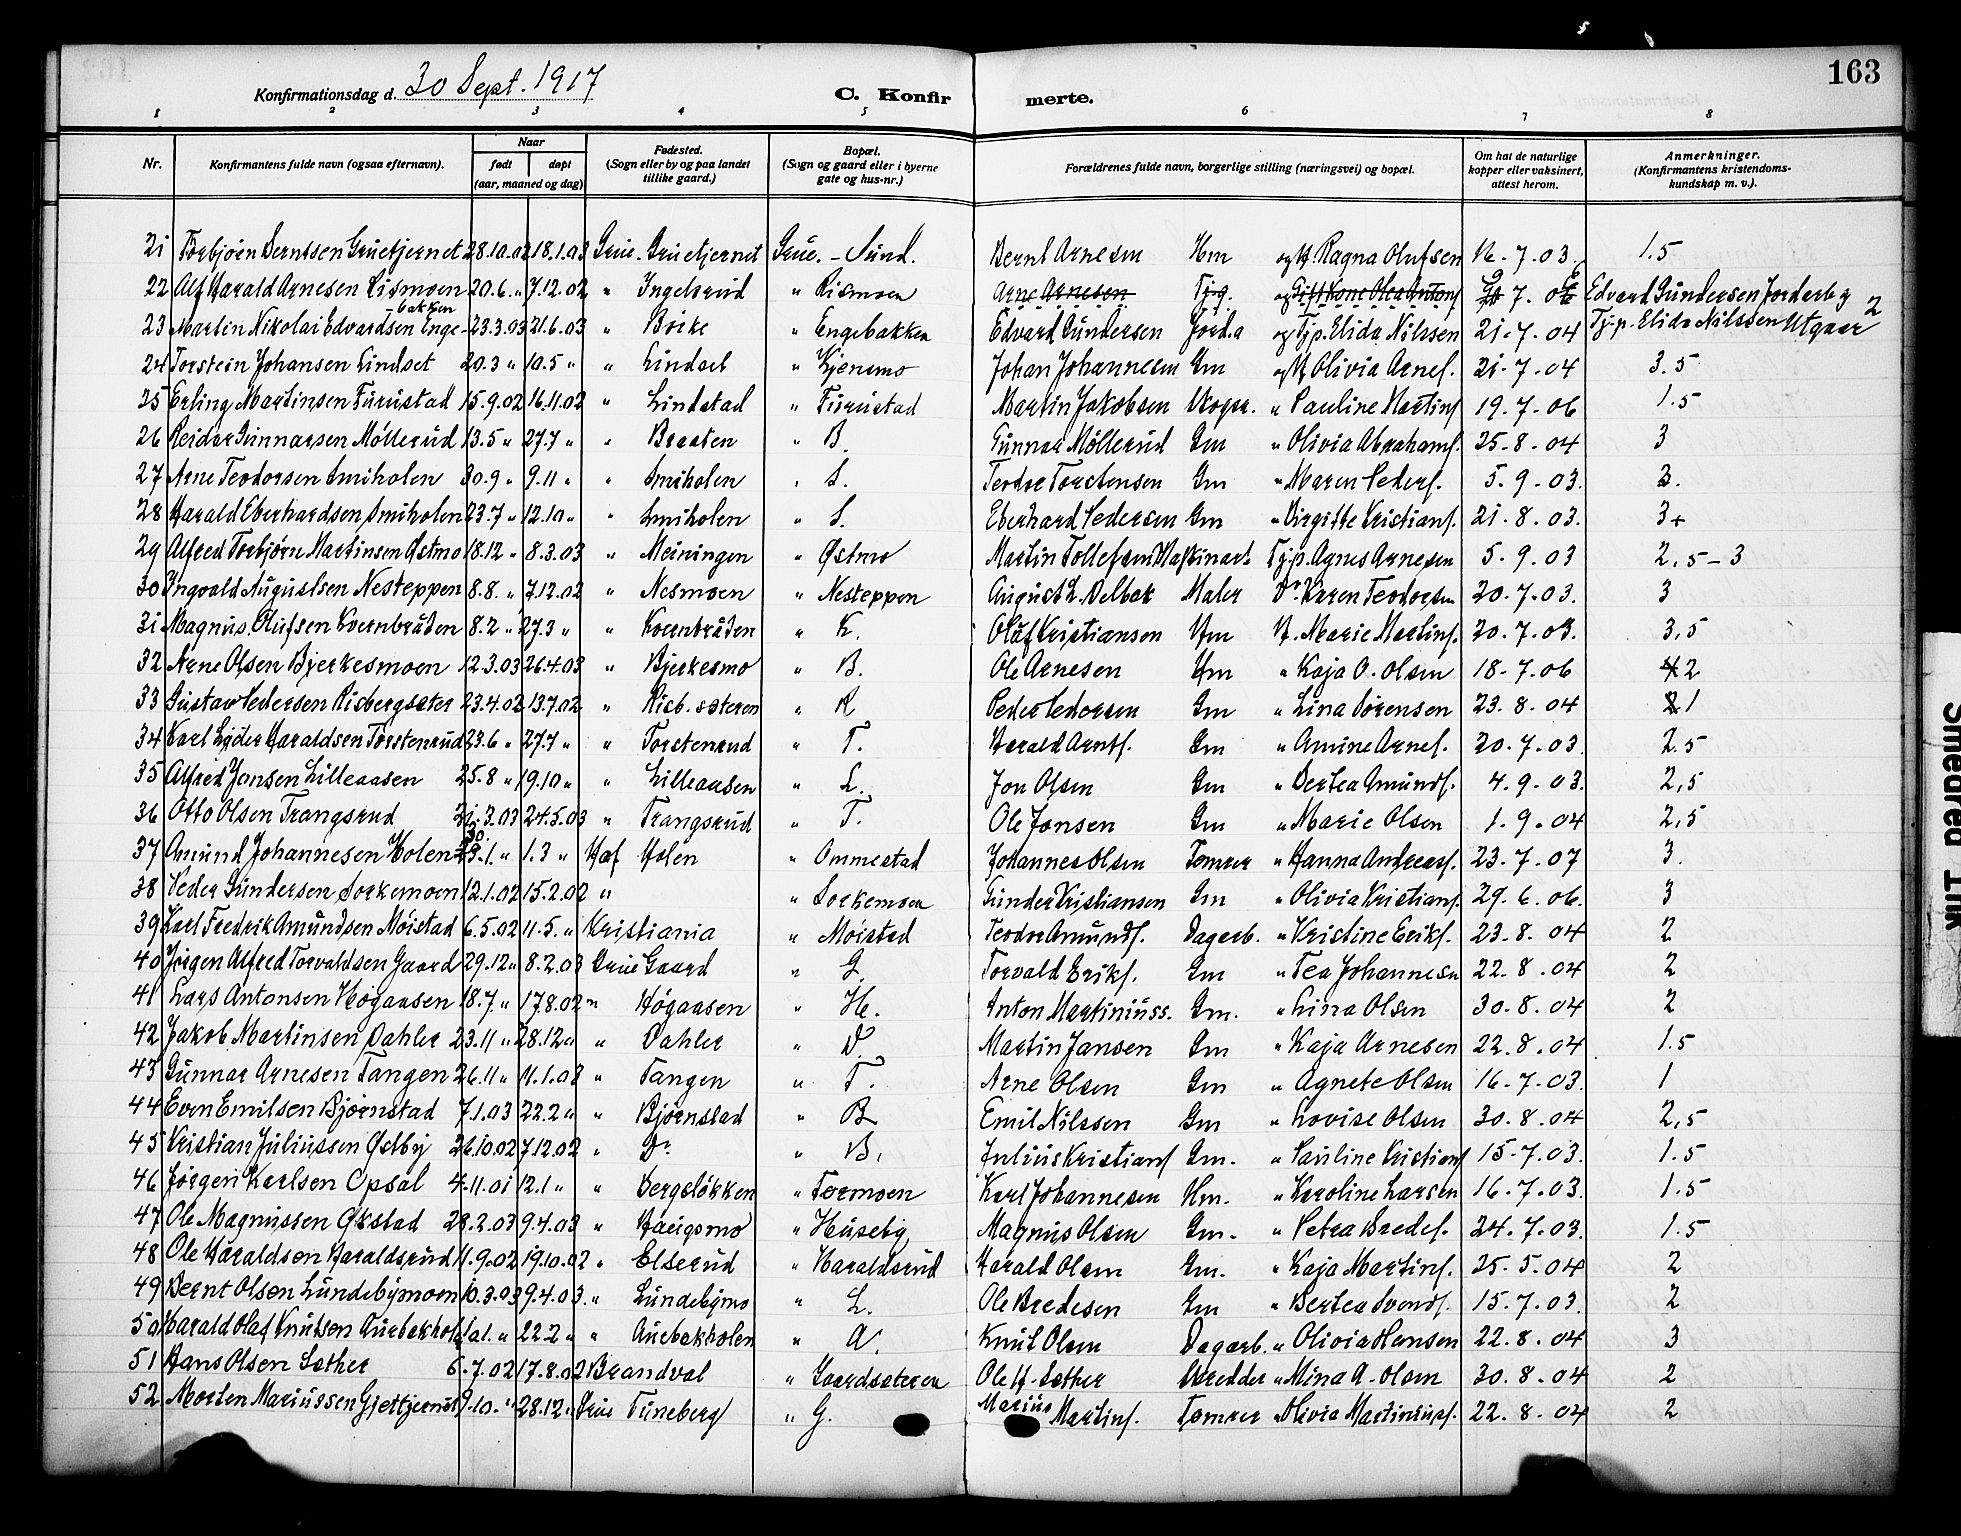 163
Konfirmationsdag d. 30 Sept. 1917 C. Konfir merte.
1 2 3 4 5 6 7 8
Nr. Konfirmantens fulde navn (ogsaa efternavn). Naar født døpt (aar, maaned og dag) Fødested. (Sogn eller by og paa landet tillike gaard.) Bopæl. (Sogn og gaard eller i byerne gate og hus-nr.) Forældrenes fulde navn, borgerlige stilling (næringsvei) og bopæl. Om hat de naturlige kopper eller vaksinert, attest herom. Anmerkninger. (Konfirmantens kristendoms-kundskap m. v.).
21 Torbjørn Berntsen Gruetjernet 28.10.02 18.1.03 Grue. Gruetjernet Grue. - Sund. Bernt Arnesen Hm og H. Ragna Olufsen 16.7.03. 1.5
22 Alf Harald Arnesen Rismoen 20.6 „ 7.12.02 „ Ingelsrud „ Rismoen Arne Arnesen Tjg. og Gift Kone Olea Antons 7.06 Edvard Gundersen Jorderby
bakken
23 Martin Nikolai Edvardsen Enge- 23.3.03 21.6.03 „ Brike „ Engebakken Edvard Gundersen Jord.a og Tjp. Elida Nilssen 21.7.04 Tj.p. Elida Nilssen Utgaar 2
24 Torstein Johansen Lindset 20.3 „ 10.5 „ „ Lindset „ Kjensmo Johan Johannesen Gm og H Olivia Arnes. 21.7.04 3.5
25 Erling Martinsen Furustad 15.9.02 16.11.02 „ Lindstad „ Furustad Martin Jakobsen Skogsr. „ Pauline Martins 19.7.06 1.5
26 Reidar Gunnarsen Möllerud 13.5 „ 27.7 „ „ Braaten „ B. Gunnar Möllerud Gm „ Olivia Abrahams. 25.8.04 3
27 Arne Teodorsen Smiholen 30.9 „ 9.11 „ „ Smiholen „ S. Teodor Torstensen Gm „ Maren Peders. 5.9.03. 3.
28 Harald Eberhardsen Smiholen 23.7 „ 12.10 „ „ Smiholen „ S. Eberhard Pedersen Gm „ Birgitte Kristians. 21.8.03. 3+
29 Alfred Torbjørn Martinsen Østmo 18.12 „ 8.3.03 „ Meiningen „ Østmo Martin Tollefsen Maskinarb. Tj.p. Agnes Arnesen 5.9.03 2,5-3
30 Ingvald Augustsen Nesteppen 8.8. „ 7.12.02 „ Nesmoen „ Nesteppen August L. Delbek Maler Do Karen Teodorsen 20.7.03. 3
31 Magnus Olufsen Kvernbråten 8.2 „ 27.3 „ „ Kvernbråten „ K. Olaf Kristiansen Hm H. Marie Martins. 20.7.03. 3,5
32 Arne Olsen Bjerkesmoen 12.3.03 26.4.03 „ Bjerkesmo „ B. Ole Arnesen Hm „ Kaja O. Olsen 18.7.06 2
33 Gustav Pedersen Risbergseter 23.4.02 13.7.02 „ Risb. seteren „ R Peder Pedersen Gm „ Lina Sørensen 23.8.04 1
34 Karl Lyder Haraldsen Torstenrud 23.6 „ 27.7 „ „ Torstenrud „ T. Harald Arnts. Gm „ Amine Arnes. 20.7.03. 2.5
35 Alfred Jonsen Lilleaasen 25.8 „ 19.10 „ „ Lilleaasen „ L. Jon Olsen Gm „ Bertea Amunds. 4.9.03. 2,5
36 Otto Olsen Trangsrud 21.3.03 24.5.03 „ Trangsrud „ T. Ole Jonsen Gm „ Marie Olsen 1.9.04 2,5
37 Amund Johannesen Holen 30.1 „ 1.3 „ Hof Holen „ Ommestad Johannes Olsen Tømrer „ Hanna Andreas. 23.7.07 3.
38 Peder Gundersen Sorkemoen 12.1.02 15.2.02 „ „ Sorkemoen Gunder Kristiansen Gm „ Olivia Kristians. 29.6.06. 3
39 Karl Fredrik Amundsen Møistad 6.5.02 11.5. „ Kristiania „ Møistad Teodor Amunds. Dagarb. „ Kristine Eriks. 23.8.04 2
40 Jørgen Alfred Torvaldsen Gaard 29.12 „ 8.2.03 Grue Gaard „ G. Torvald Eriks. Gm „ Tea Johannesen 22.8.04 2
41 Lars Antonsen Høgaasen 18.7. „ 17.8.02 „ Høgaasen „ H. Anton Martiniuss. Gm. „ Lina Olsen 30.8.04 2
42 Jakob Martinsen Dahler 23.11 „ 28.12 „ „ Dahler „ D. Martin Jansen Gm „ Kaja Arnesen 22.8.04 1.5
43 Gunnar Arnesen Tangen 26.11 „ 11.1.03 „ Tangen „ T. Arne Olsen Gm „ Agnete Olsen 16.7.03. 1
44 Even Emilsen Bjørnstad 7.1.03 22.2 „ „ Bjørnstad „ B Emil Nilssen Gm „ Lovise Olsen 30.8.04 2,5
45 Kristian Juliussen Østby 26.10.02 7.12.02 „ Do „ B. Julius Kristians Gm. „ Pauline Kristians 15.7.03. 1.5
46 Jørgen Karlsen Opsal 4.11.01 12.1 „ „ Bergsløkken „ Tormoen Karl Johannesen Hm. „ Karoline Larsen 16.7.03. 1.5
47 Ole Magnussen Økstad 28.2.03 9.4.03 „ Haugsmo „ Huseby Magnus Olsen Gm. „ Petra Bredes. 24.7.03. 1.5
48 Ole Haraldsen Haraldsrud 11.9.02 19.10.02 „ Elserud „ Haraldsrud Harald Olsen Gm. „ Kaja Martins. 25.5.04 2
49 Bernt Olsen Lundebymoen 10.3.03 9.4.03. „ Lundebymo „ L. Ole Bredesen Gm „ Bertea Svends. 15.7.03. 2
50 Harald Olaf Knutsen Auebakhol 1.1. „ 22.2 „ „ Auebakholen „ A. Knut Olsen Dagarb. „ Olivia Hansen 22.8.04 3
51 Hans Olsen Sæther 6.7.02 17.8.02 Brandval „ Gaardseteren Ole H. Sæther Skredder „ Mina A. Olsen 30.8.04 2
52 Morten Mariussen Gjettjernet 9.10. „ 28.12 „ Grue Tuneberg „ G. Marius Martins. Tømrer „ Olivia Martinius. 22.8.04 2
Smeared Ink